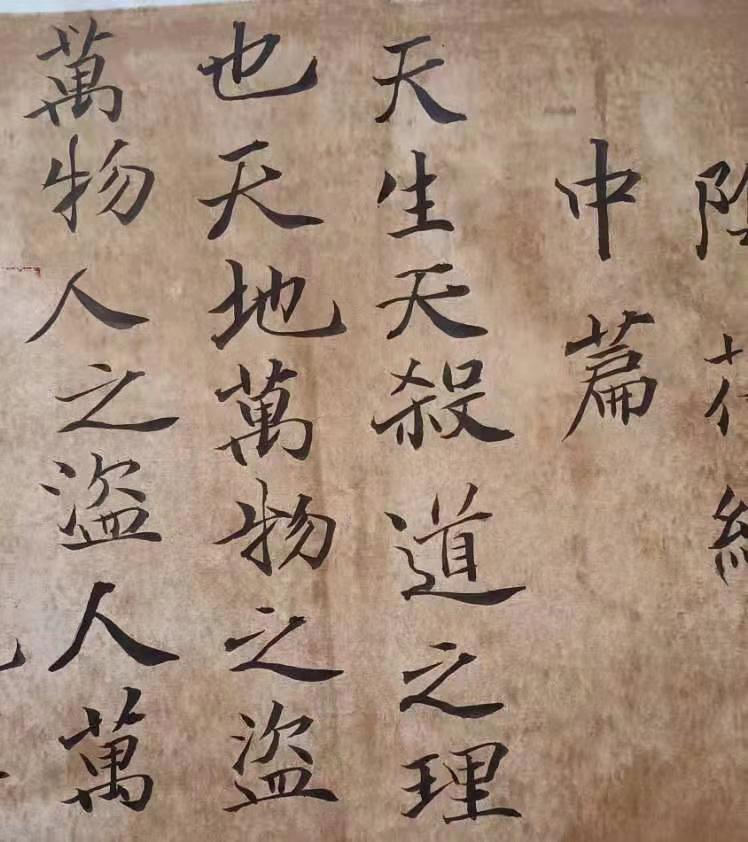 陰符經
中篇
天生天殺道之理
也天地萬物之盜
萬物人之盜人萬